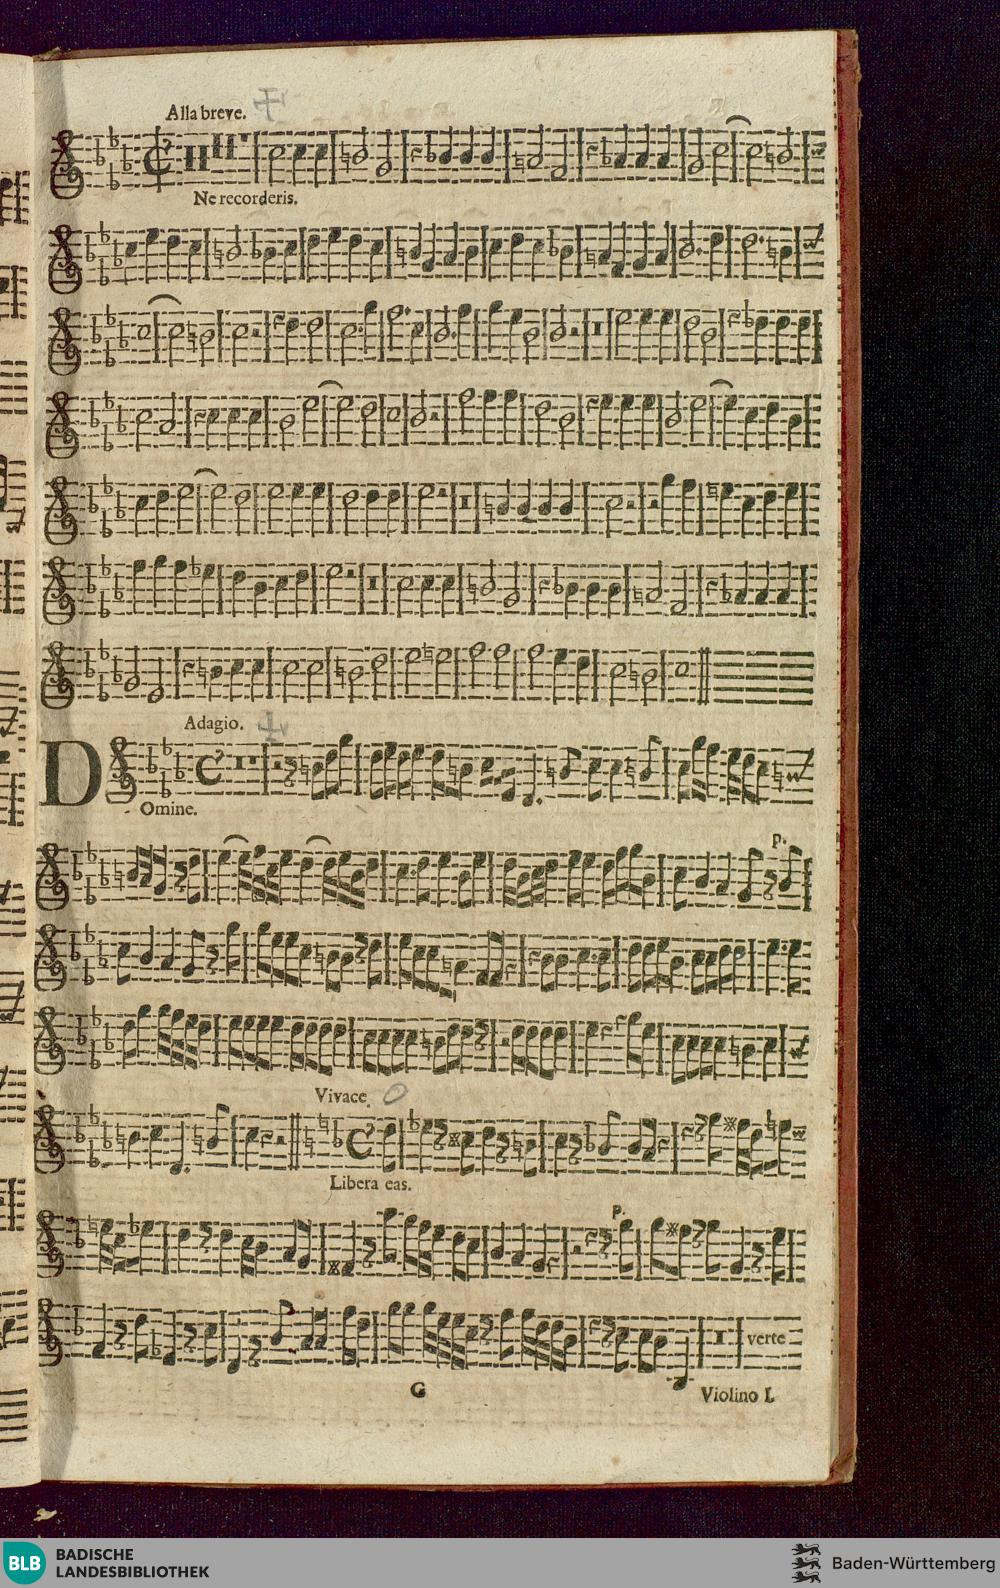 Alla breve.
Ne recorderis.
Adagio.
D
Omine.
p.
Vivace.
Libera eas.
p.
verte
G
Violino I.
BLB
BADISCHE
LANDESBIBLIOTHEK
Baden-Württemberg